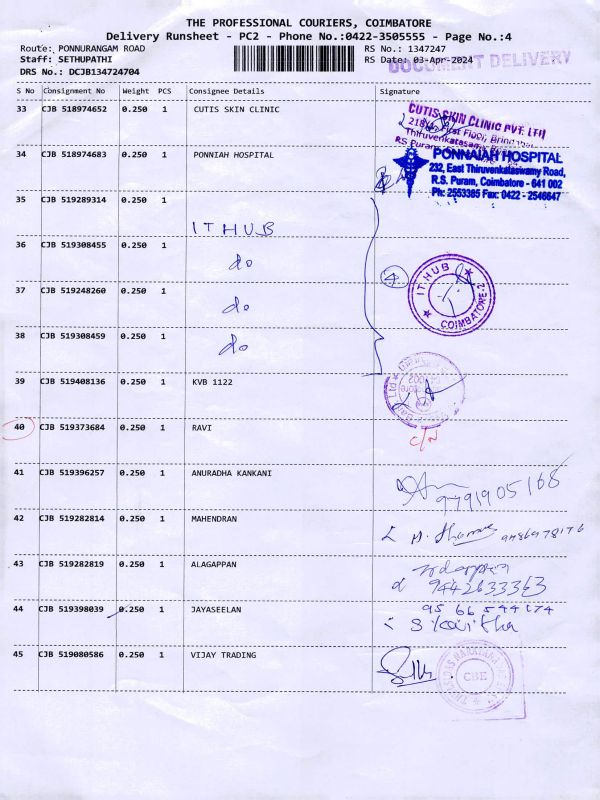 THE PROFESSIONAL COURIERS, COIMBATORE
Delivery Runsheet - PC2 - Phone No.:0422-3505555 - Page No.:4
Route: PONNURANGAM ROAD RS No.: 1347247
Staff: SETHUPATHI RS Date: 03-Apr-2024
DOCUMENT DELIVERY
DRS No.: DCJB134724704
S No Consignment No Weight PCS Consignee Details Signature
33 CJB 518974652 0.250 1 CUTIS SKIN CLINIC
CUTIS SKIN CLINIC PVT. LTD
First Floor,
Thiruvenkatasamy
RS Puram,
34 CJB 518974683 0.250 1 PONNIAH HOSPITAL
PONNAIAH HOSPITAL
232, East Thiruvenkataswamy Road,
R.S. Puram, Coimbatore - 641 002
Ph: 2553385 Fax: 0422 - 2546647
35 CJB 519289314 0.250 1 IT HUB
36 CJB 519308455 0.250 1 do
37 CJB 519248260 0.250 1 do
4
IT HUB
COIMBATORE-2
38 CJB 519308459 0.250 1 do
39 CJB 519408136 0.250 1 KVB 1122
40 CJB 519373684 0.250 1 RAVI
C/N
41 CJB 519396257 0.250 1 ANURADHA KANKANI
9791905168
42 CJB 519282814 0.250 1 MAHENDRAN
9486978176
43 CJB 519282819 0.250 1 ALAGAPPAN
9442633363
44 CJB 519398039 0.250 1 JAYASEELAN
95 66 544174
S Kavitha
45 CJB 519080586 0.250 1 VIJAY TRADING
CBE